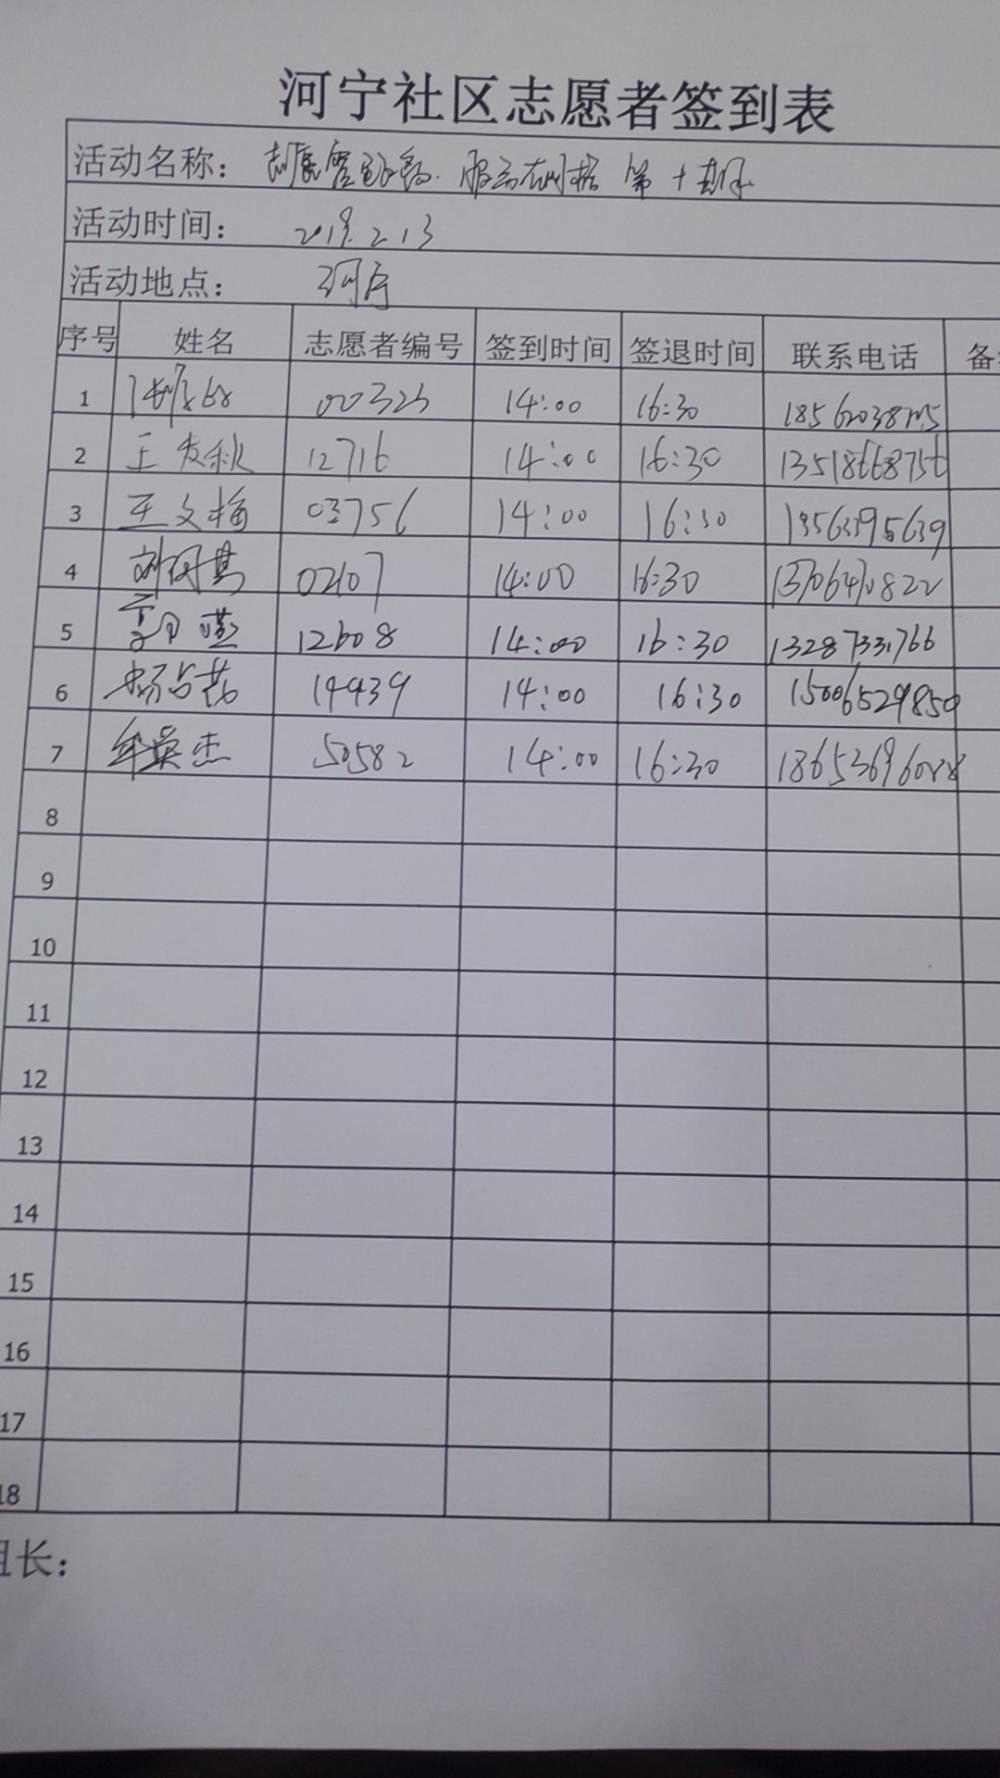 河宁社区志愿者签到表
活动名称： 第十期
活动时间： 2019.2.13
活动地点： 河宁
序号 姓名 志愿者编号 签到时间 签退时间 联系电话
1 00323 14:00 16:30
2 王发秋 12716 14:00 16:30 13518668756
3 王文梅 03756 14:00 16:30 13563395639
4 02107 14:00 16:30 13706470822
5 12608 14:00 16:30 13287331766
6 杨占花 19439 14:00 16:30 15006529850
7 牟奠杰 50582 14:00 16:30
8
9
10
11
12
13
14
15
16
17
18
组长：